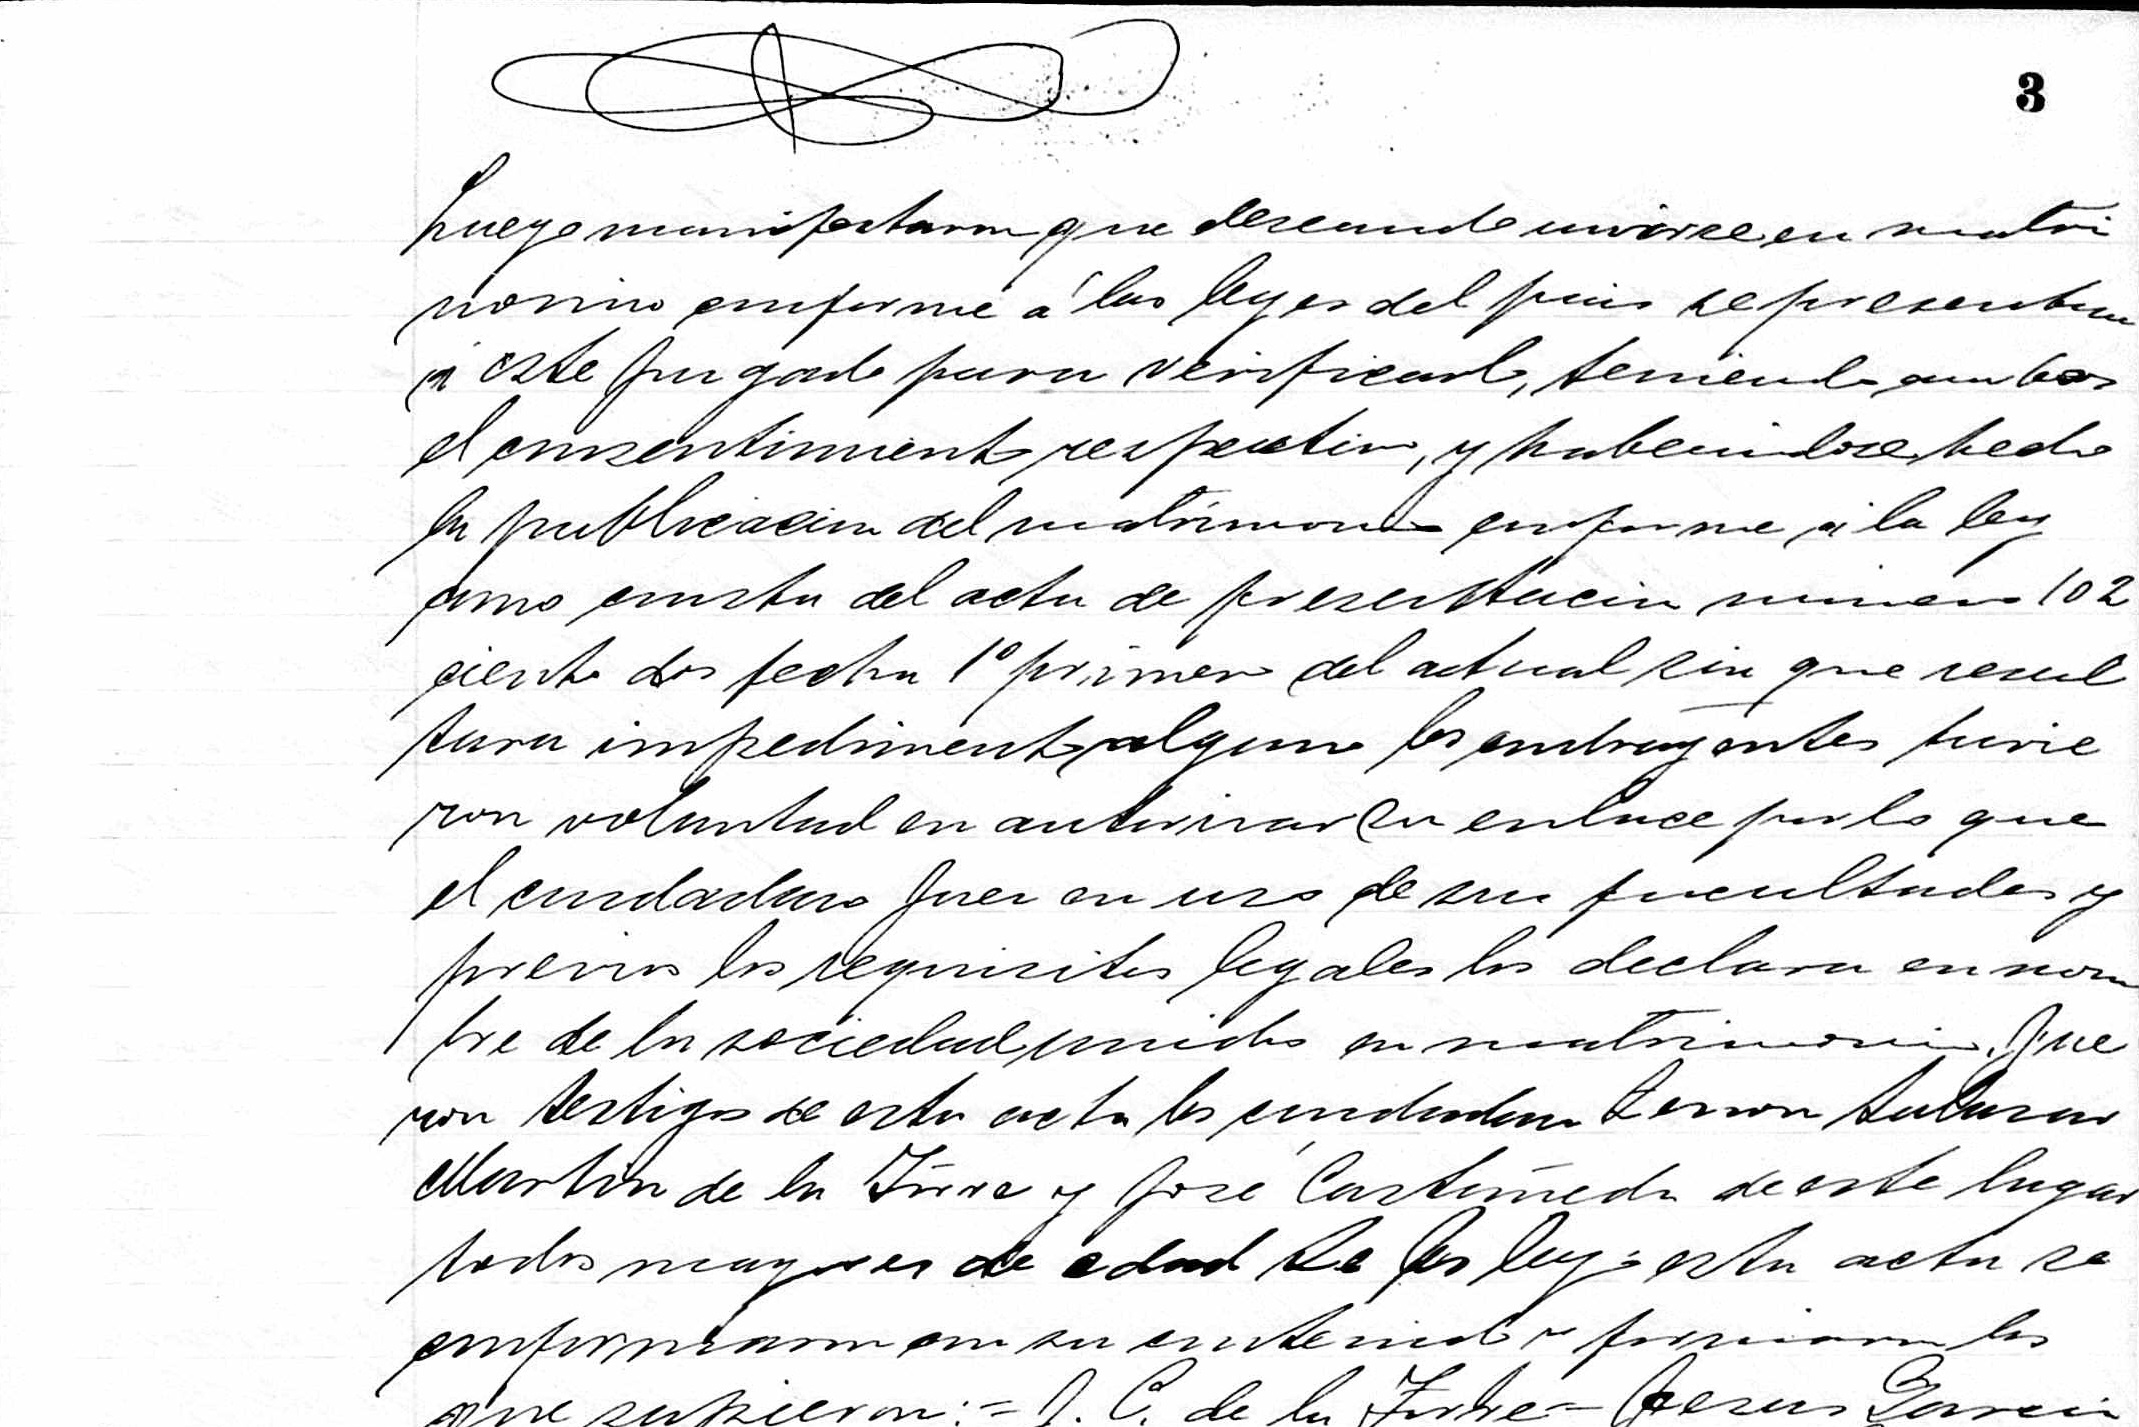 3
Luego manifestaron que deseando unirse en matri
monio conforme á las leyes del pais se presentan
á este Juzgado para verificarlo, teniendo ambos
el consentimiento respectivo, y habiendose hecho
la publicacion del matrimonio conforme á la ley
como consta del acta de presentacion numero 102
ciento dos fecha 1º primero del actual sin que resul
tara impedimento alguno los contrayentes tuvie
ron voluntad en autorizar su enlace por lo que
el ciudadano Juez en uso de sus facultades y
previos los requisitos legales los declara en nom
bre de la sociedad unidos en matrimonio. Fue
ron testigos de esta acta los ciudadanos Zenon Salazar
Martin de la Torre y José Castañeda de este lugar
todos mayores de edad Se les leyó esta acta se
conformaron con su contenido y firmaron los
que supieron:= J. C. de la Torre= Jesus Garcia